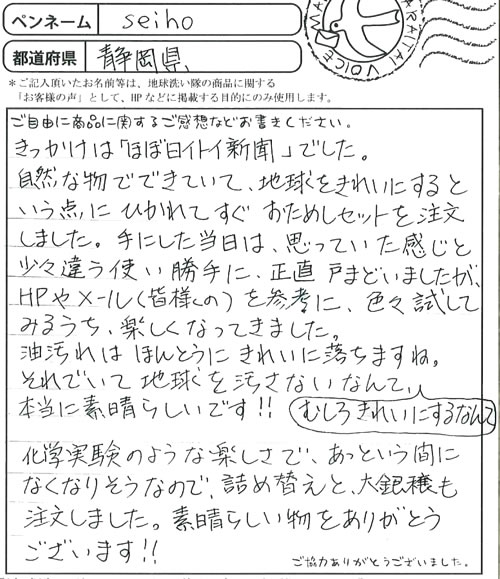 ペンネーム seiho
都道府県 静岡県
＊ご記入頂いたお名前等は、地球洗い隊の商品に関する
「お客様の声」として、HPなどに掲載する目的にのみ使用します。
ARAITAI VOICE
ご自由に商品に関するご感想などお書きください。
きっかけは「ほぼ日イトイ新聞」でした。
自然な物でできていて、地球をきれいにすると
いう点にひかれてすぐおためしセットを注文
しました。手にした当日は、思っていた感じと
少々違う使い勝手に、正直戸まどいましたが、
HPやメール(皆様の)を参考に、色々試して
みるうち、楽しくなってきました。
油汚れはほんとうにきれいに落ちますね。
それでいて地球を汚さないなんて、
本当に素晴らしいです!! むしろきれいにするなんて
化学実験のような楽しさで、あっという間に
なくなりそうなので、詰め替えと、大銀穣も
注文しました。素晴らしい物をありがとう
ございます!!
ご協力ありがとうございました。